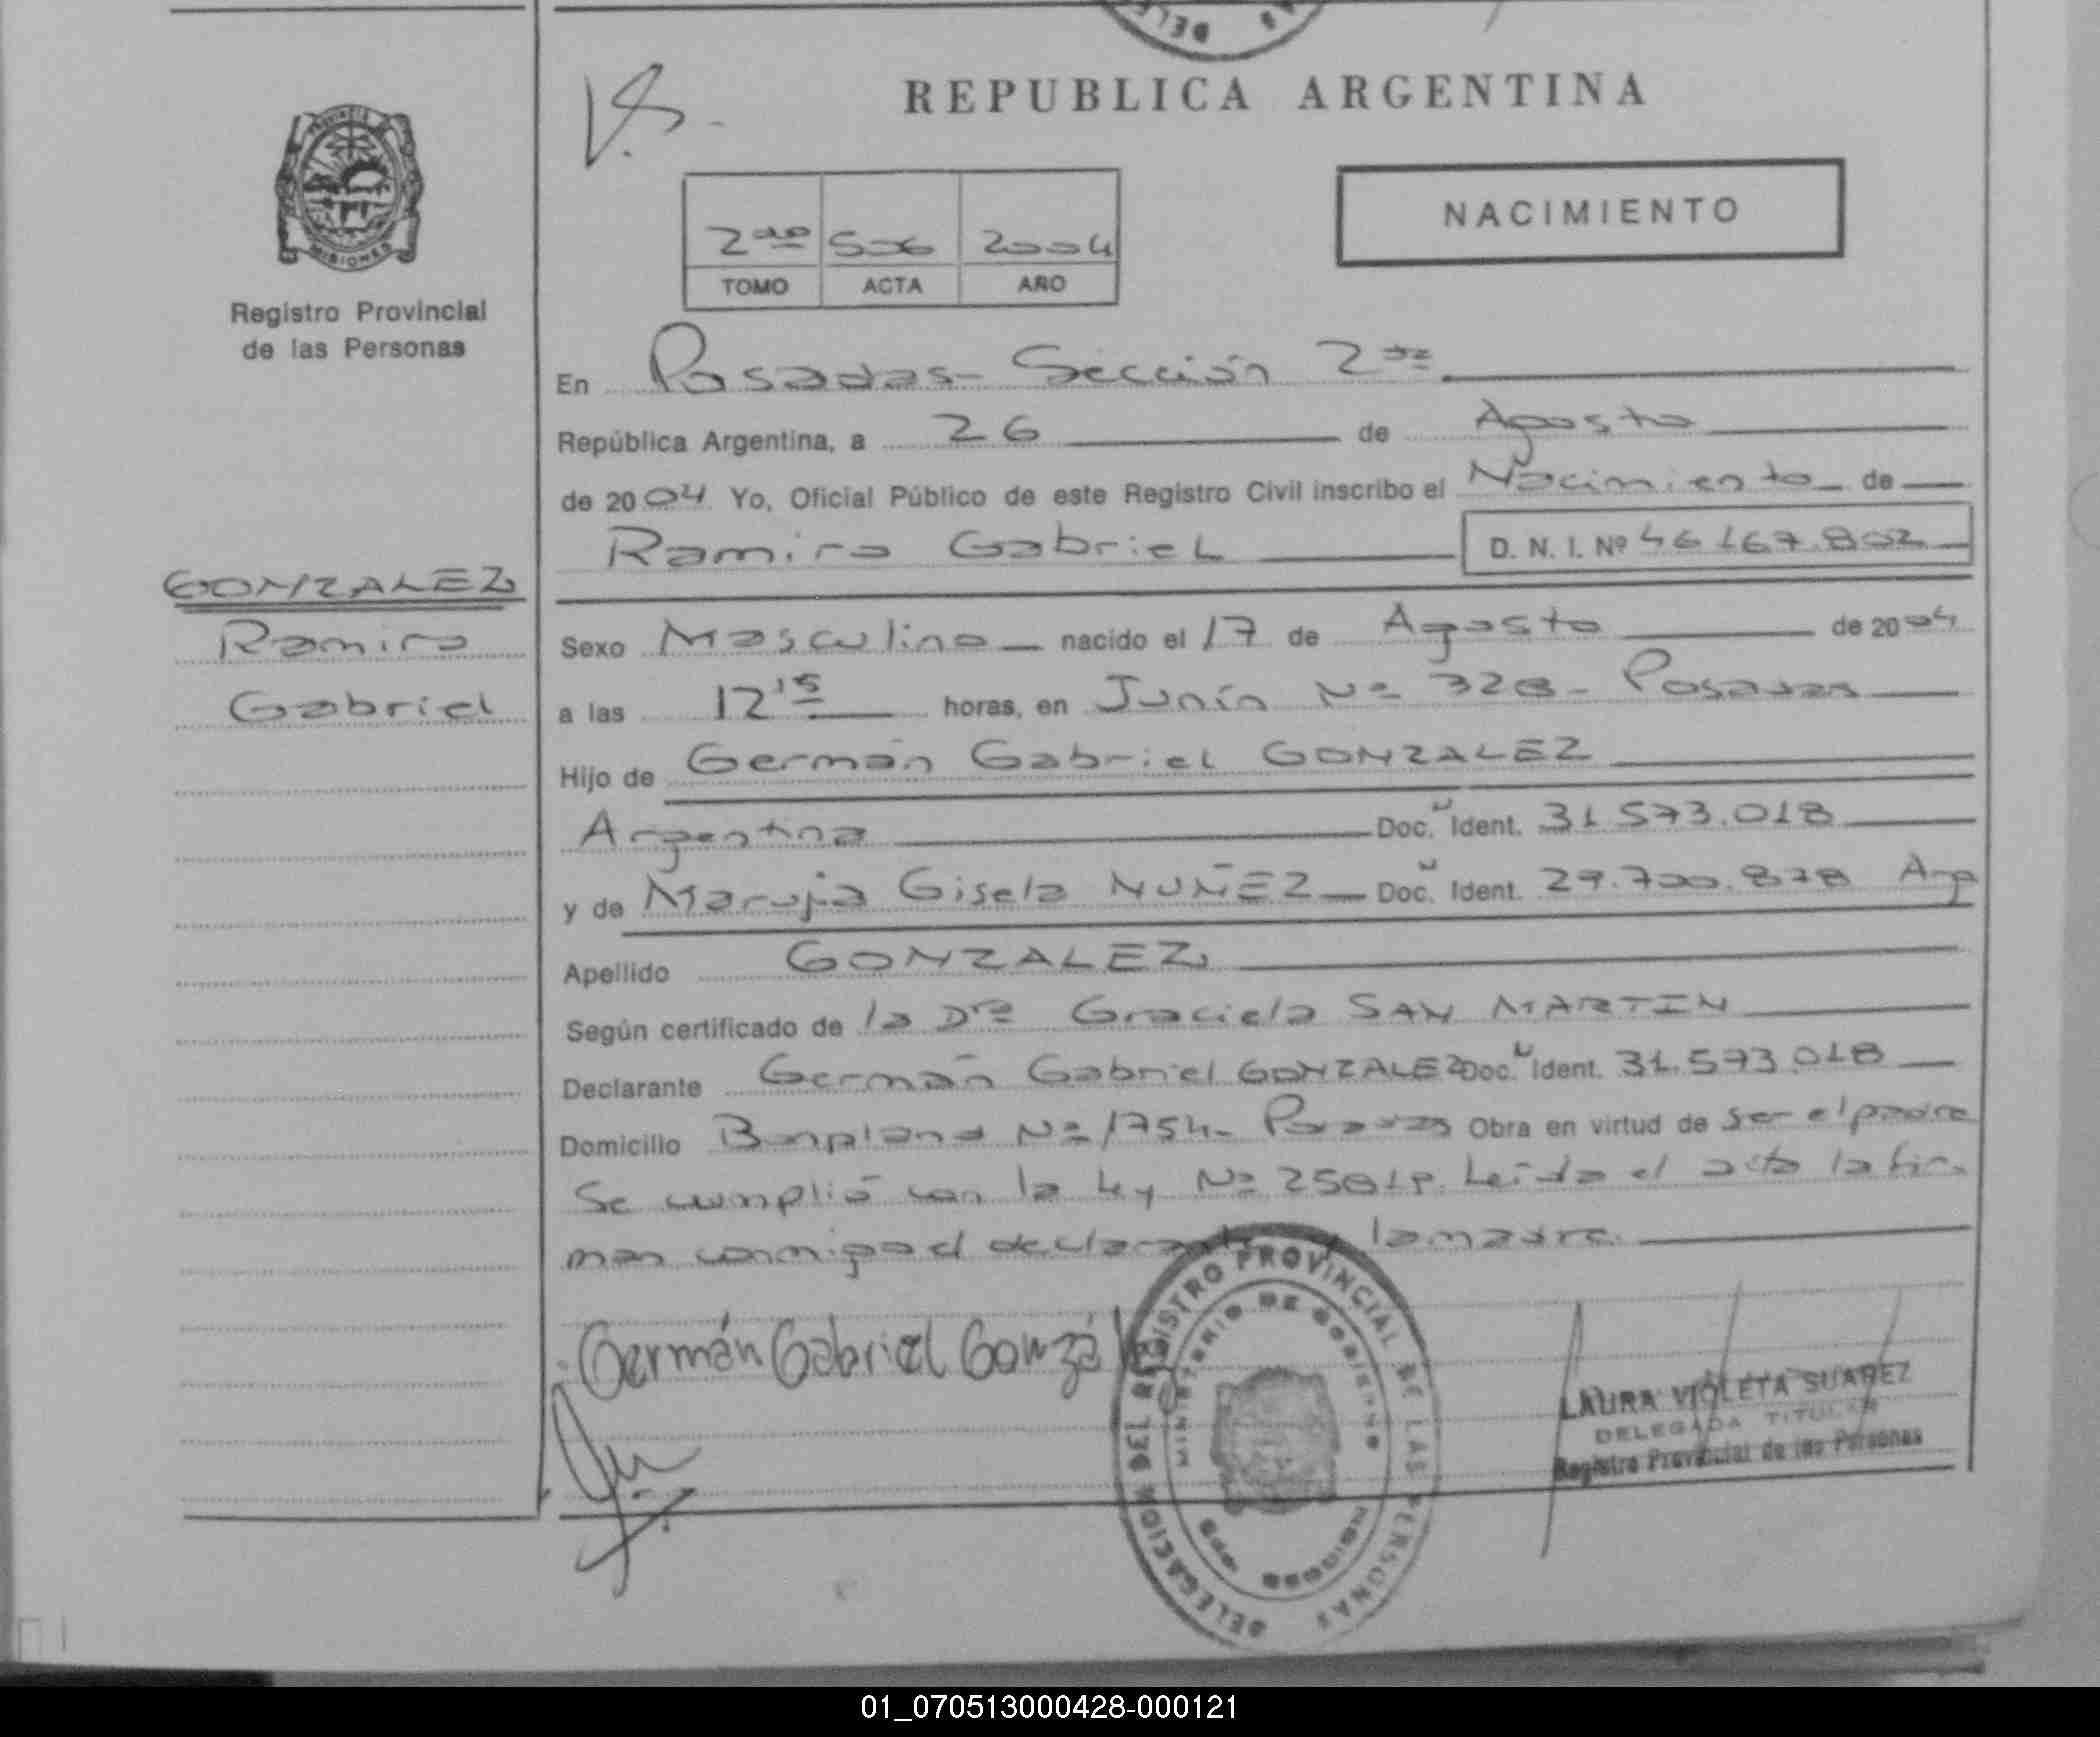 REPUBLICA ARGENTINA
NACIMIENTO
2do 506 2004
TOMO ACTA AÑO
PROVINCIA DE MISIONES
Registro Provincial
de las Personas
En Posadas - Sección 2da
República Argentina, a 26 de Agosto
de 2004 Yo, Oficial Público de este Registro Civil inscribo el Nacimiento de
Ramiro Gabriel D. N. I. Nº 46.167.802
GONZALEZ
Ramiro
Gabriel
Sexo Masculino nacido el 17 de Agosto de 2004
a las 12 15 horas, en Junín Nº 328 - Posadas
Hijo de Germán Gabriel GONZALEZ
Argentina Doc. Ident. 31.573.018
y de Maruja Gisela NUÑEZ Doc. Ident. 29.700.878 Arg
Apellido GONZALEZ
Según certificado de la Dra Graciela SAN MARTIN
Declarante Germán Gabriel GONZALEZ Doc. Ident. 31.573.018
Domicilio Bonpland Nº 1754 - Posadas Obra en virtud de ser el padre
Se cumplió con la Ley Nº Leída el acta la fir
man conmigo el declarante y la madre.
Germán Gabriel Gonzále
DELEGACION DEL REGISTRO PROVINCIAL DE LAS PERSONAS
MINISTERIO DE GOBIERNO
POSADAS MISIONES
LAURA VIOLETA SUAREZ
DELEGADA TITULAR
Registro Provincial de las Personas
01_070513000428-000121